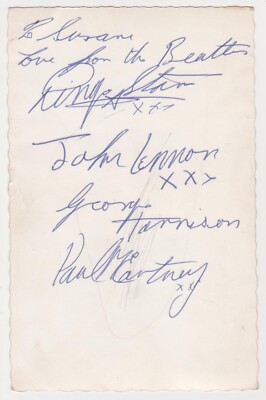 To Susane
Love from the Beatles
Ringo Starr
xxx
John Lennon
xxx
George
Harrison
Paul McCartney
xx